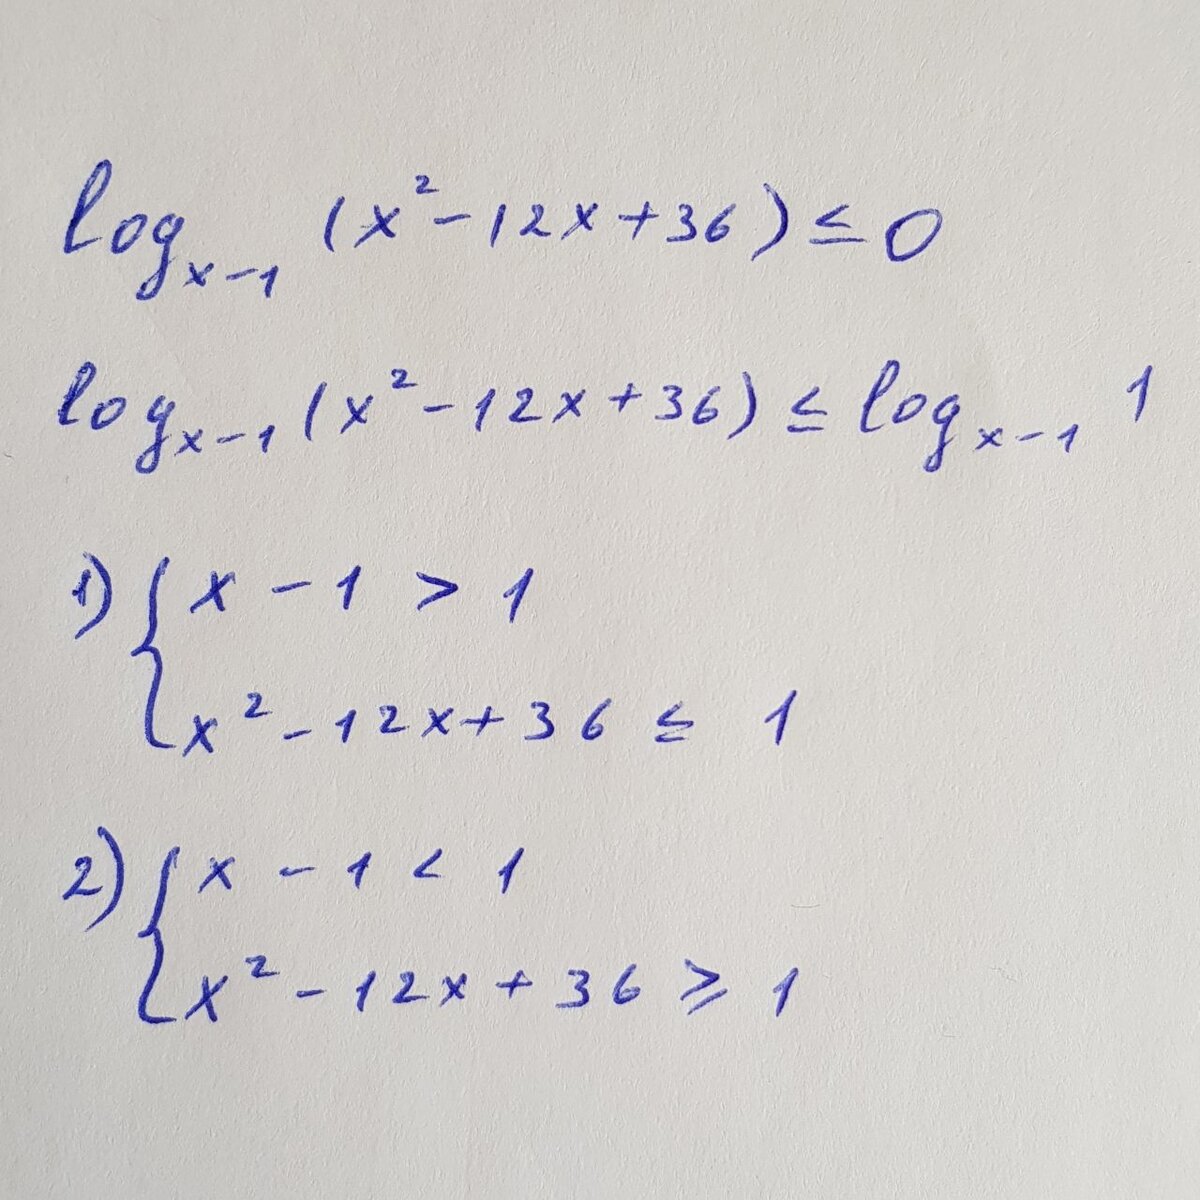 log_{x-1} (x² - 12x + 36) ≤ 0
log_{x-1} (x² - 12x + 36) ≤ log_{x-1} 1
1) { x - 1 > 1
x² - 12x + 36 ≤ 1
2) { x - 1 < 1
x² - 12x + 36 ≥ 1